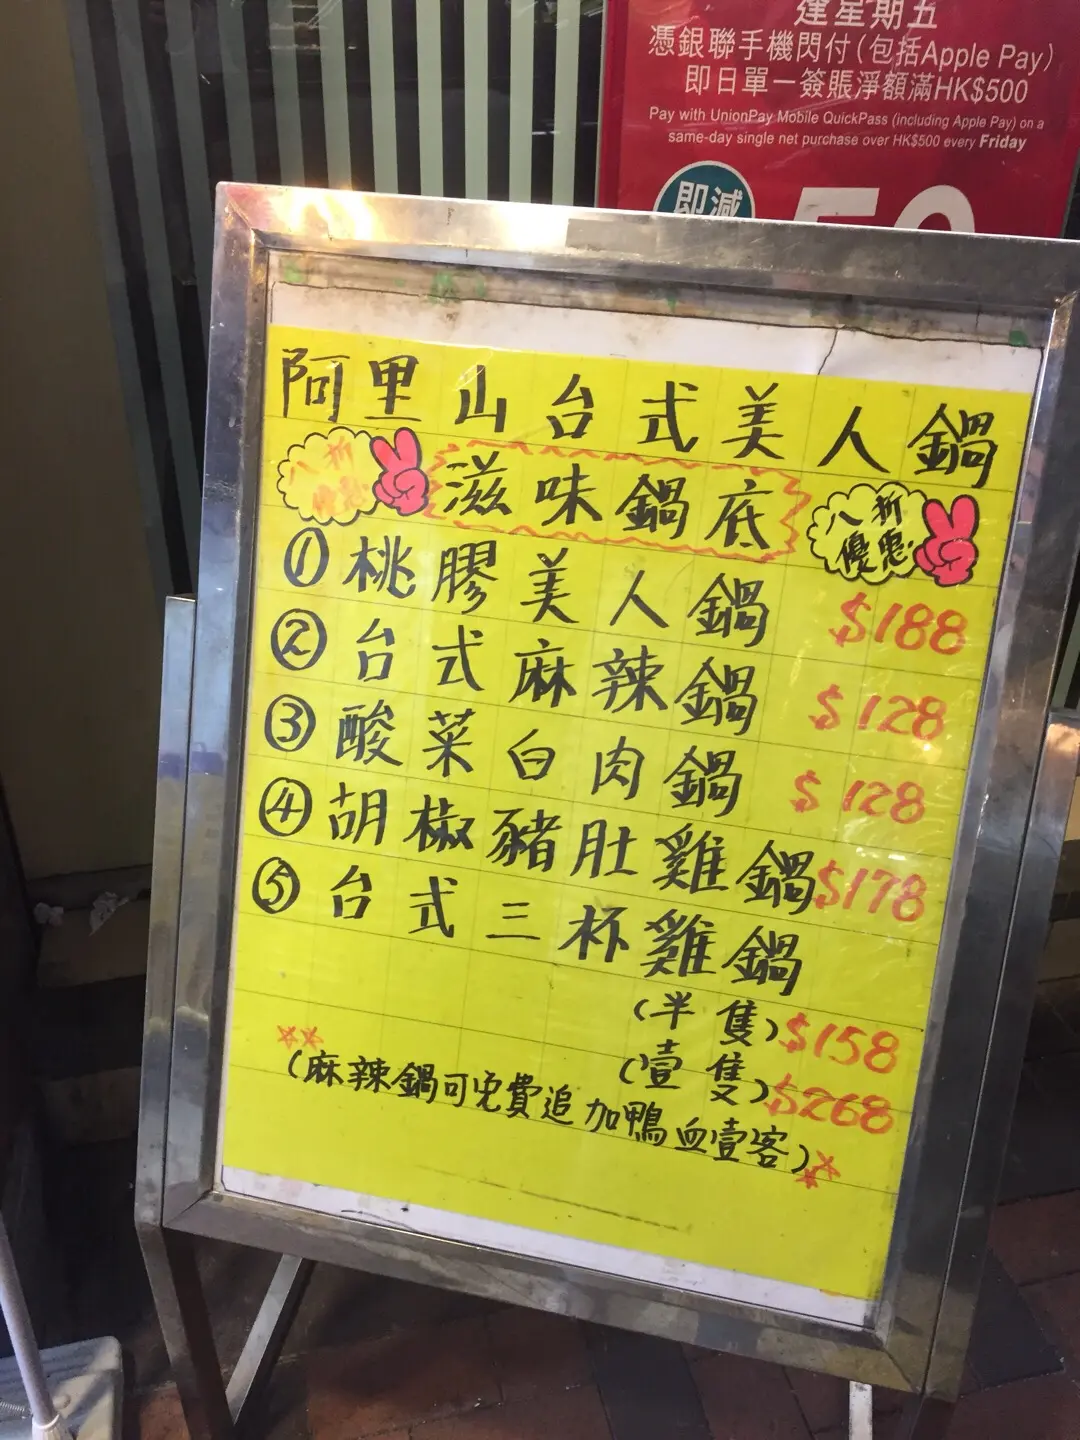 逢星期五
憑銀聯手機閃付(包括Apple Pay)
即日單一簽賬淨額滿HK$500
Pay with UnionPay Mobile QuickPass (including Apple Pay) on a
same-day single net purchase over HK$500 every Friday
即減
50
阿里山台式美人鍋
八折
優惠
滋味鍋底
八折
優惠
① 桃膠美人鍋 $188
② 台式麻辣鍋 $128
③ 酸菜白肉鍋 $128
④ 胡椒豬肚雞鍋 $178
⑤ 台式三杯雞鍋
(半隻) $158
(壹隻) $268
(麻辣鍋可免費追加鴨血壹客)